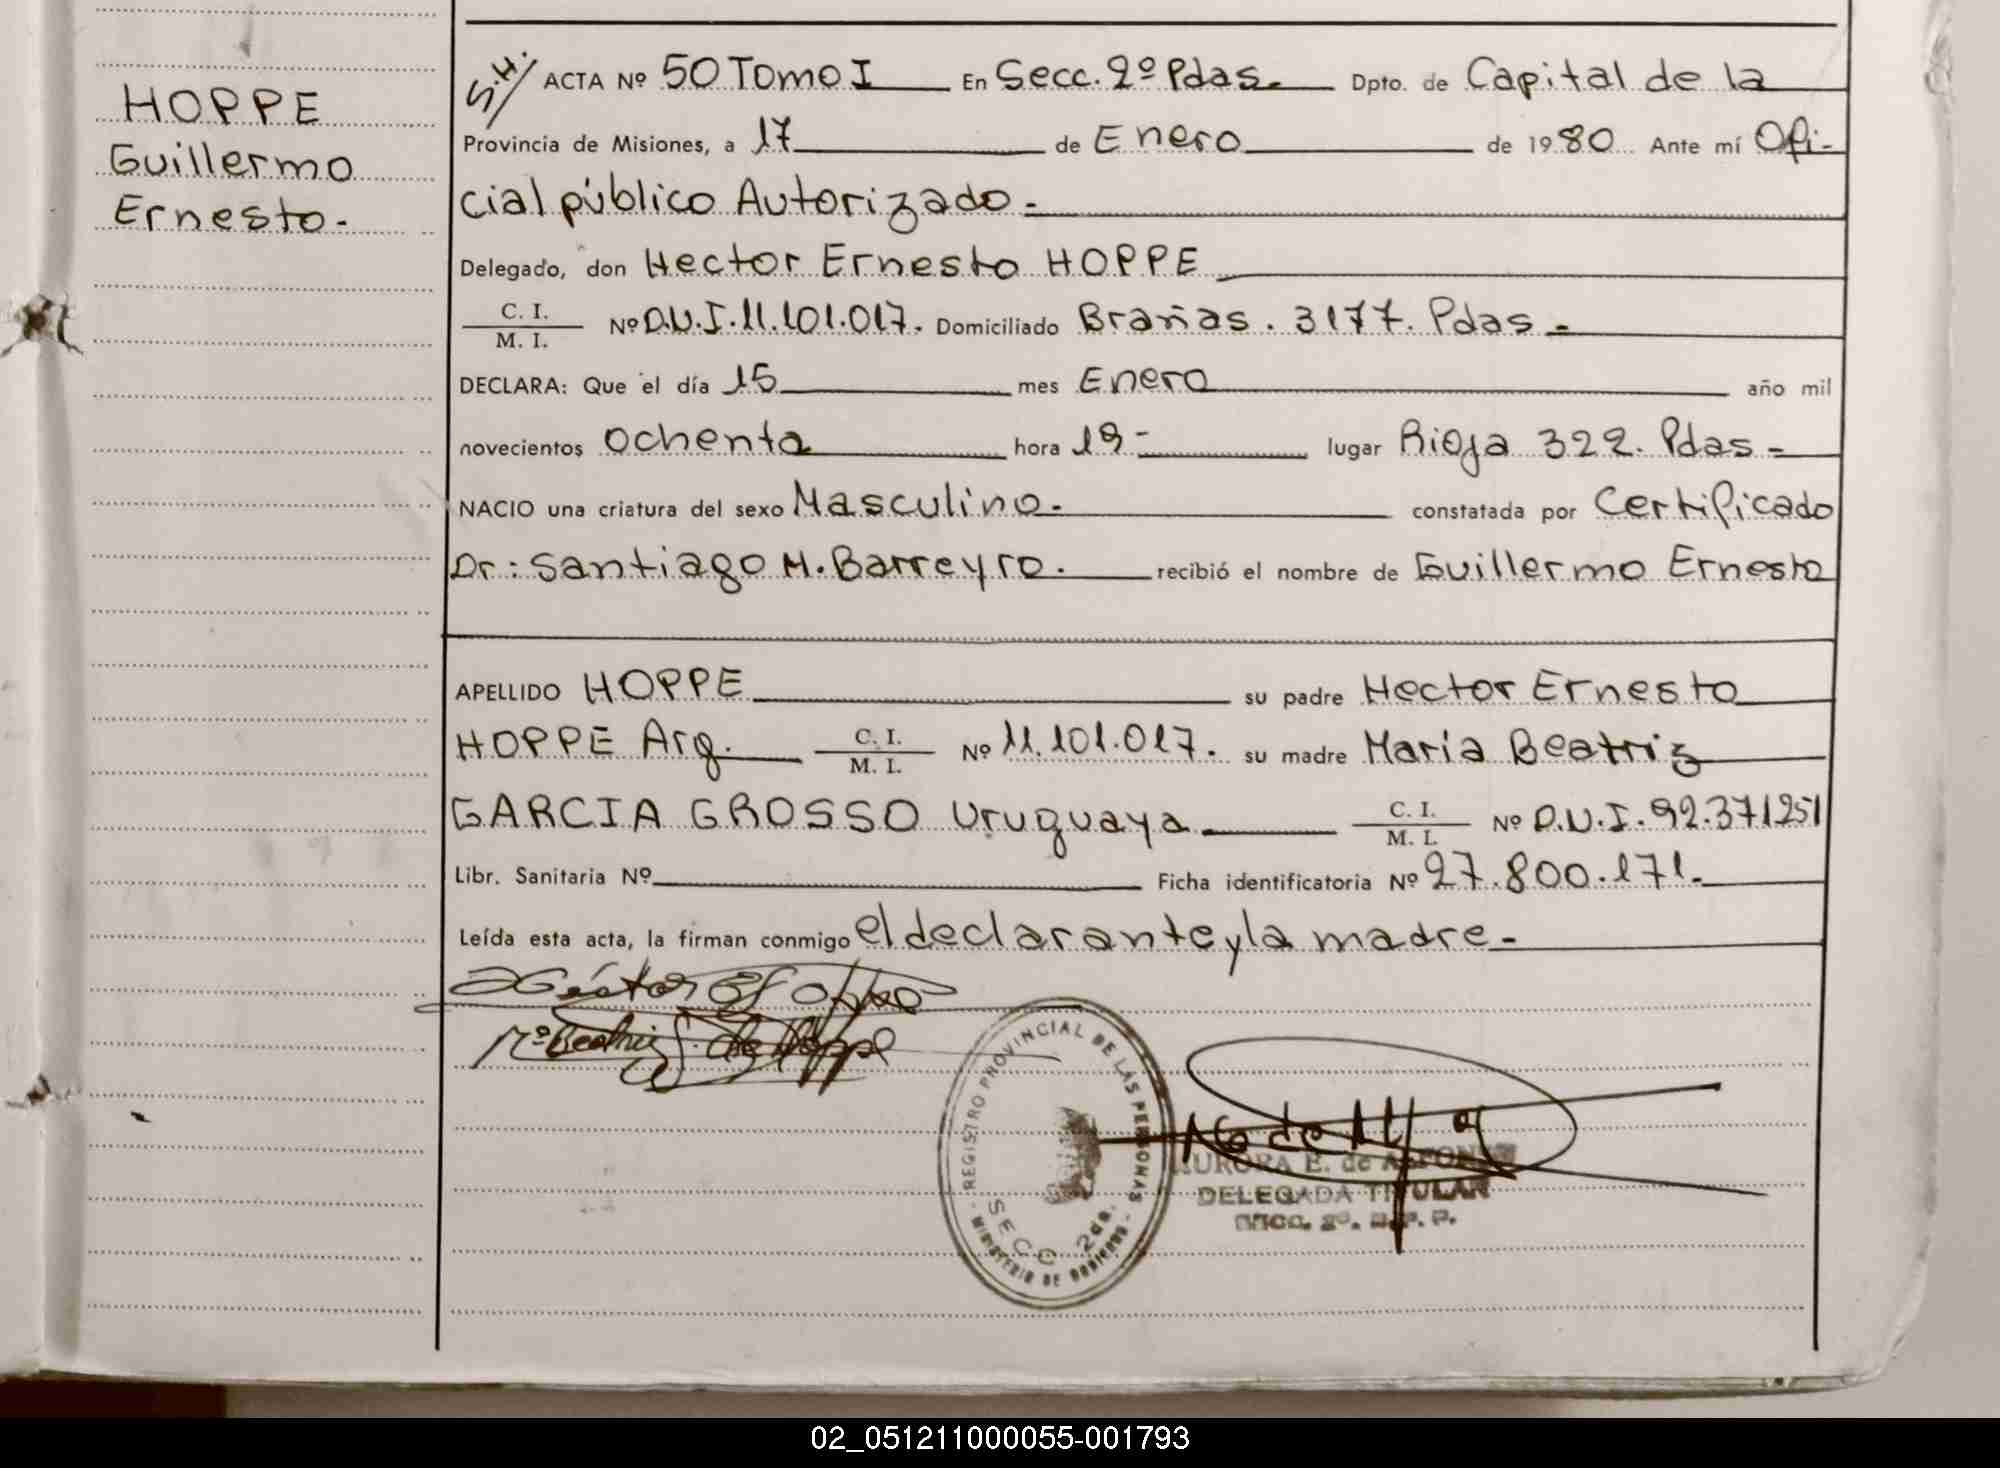 HOPPE
Guillermo
Ernesto.-
S.H./ ACTA Nº 50 Tomo I En Secc. 2º Pdas.- Dpto. de Capital de la
Provincia de Misiones, a 17 de Enero de 1980 Ante mí Ofi-
cial público Autorizado.-
Delegado, don Hector Ernesto HOPPE
C. I.
M. I.
Nº D.N.I. 11.101.017. Domiciliado Brañas. 3177. Pdas.-
DECLARA: Que el día 15 mes Enero año mil
novecientos Ochenta hora 19- lugar Rioja 322. Pdas.-
NACIO una criatura del sexo Masculino.- constatada por Certificado
Dr: Santiago M. Barreyro. recibió el nombre de Guillermo Ernesto
APELLIDO HOPPE su padre Hector Ernesto
HOPPE Arg. C. I. M. I. Nº 11.101.017. su madre María Beatriz
GARCIA GROSSO Uruguaya C. I. M. I. Nº D.N.I. 92.371251
Libr. Sanitaria Nº Ficha identificatoria Nº 27.800.171.-
Leída esta acta, la firman conmigo el declarante y la madre.-
Mª Beatriz G. de Hoppe
REGISTRO PROVINCIAL DE LAS PERSONAS
SECC 2da.
MINISTERIO DE GOBIERNO
AURORA E. de
DELEGADA TITULAR
SECC. 2º. R.P.P.
02_051211000055-001793